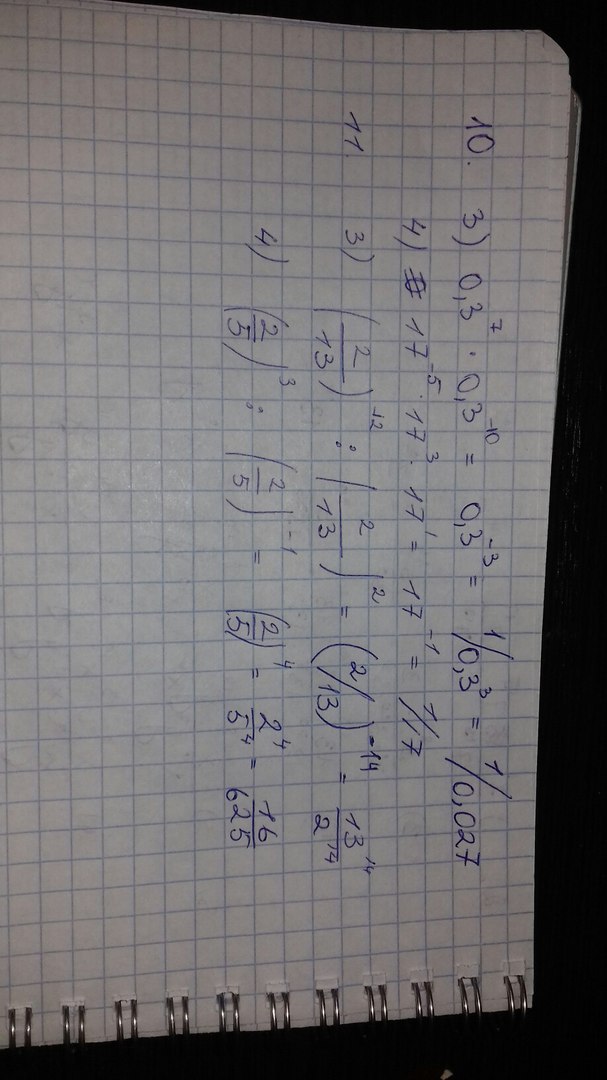 10. 3) 0,3⁷ · 0,3⁻¹⁰ = 0,3⁻³ = 1/0,3³ = 1/0,027
4) 17⁻⁵ · 17³ · 17¹ = 17⁻¹ = 1/17
11. 3) (2/13)⁻¹² : (2/13)² = (2/13)⁻¹⁴ = 13¹⁴/2¹⁴
4) (2/5)³ : (2/5)⁻¹ = (2/5)⁴ = 2⁴/5⁴ = 16/625